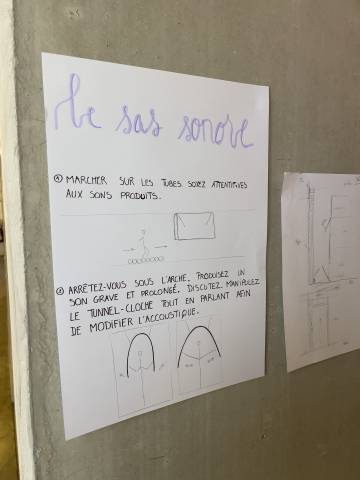 le sas sonore
① MARCHER SUR LES TUBES. SOYEZ ATTENTIF·VES
AUX SONS PRODUITS.
② ARRÊTEZ-VOUS SOUS L'ARCHE. PRODUISEZ UN
SON GRAVE ET PROLONGÉ. DISCUTEZ. MANIPULEZ
LE TUNNEL-CLOCHE TOUT EN PARLANT AFIN
DE MODIFIER L'ACCOUSTIQUE.